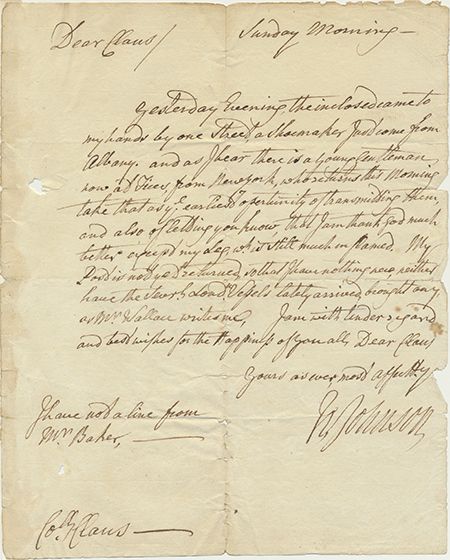 Dear Claus/ Sunday Morning —
Yesterday Evening the inclosed came to
my hands by one Street, a Shoemaker Just come from
Albany. and as I hear there is a Young Gentleman
now at from New York, who returns this Morning
take that as ye. earliest opertunity of transmitting them,
and also of letting you know that I am thank God much
better except my leg, wh. is still much inflamed. My
is not yet returned, so that I have nothing new, neither
have the several London Vessels lately arrived, brought any
as Mr. Wallace writes me, I am with tender regard
and best wishes for the Happiness of you all, Dear Claus
Yours as ever most affectly
W Johnson
I have not a line from
Mr. Baker, —
Coll. Claus —